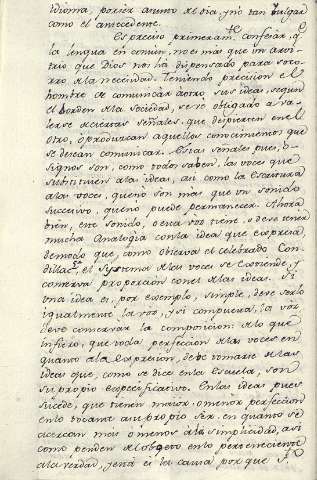 idioma, poner asunto al dia, y no tan vulgar
como el antecedente.
Es preciso primeram.te confesar, q.
la lengua en comun, no es mas que un arvi-
trio que Dios nos ha dispensado para soco-
rro de la necesidad. Teniendo precision el
hombre de comunicar a otro, sus ideas, segun
el horden de la Sociedad, se ve obligado a va-
lerse de ciertas señales, que despierten en el
otro, ò produzcan aquellos conocimientos que
se desean comunicar. Estas señales pues, ò
signos son, como todos saben, las voces que
substituien a las ideas, asi como la Escritura
a las voces, que no son mas que un sonido
sucesivo, que no puede permanecer. Ahora
bien, este sonido, ò esta voz tiene, ò debe tener
mucha Analogia con la idea que expresa,
de modo que, como observa el celebrado Con-
dillac, el Systema de las voces se extiende, y
conserva proporcion con el de las ideas. Si
una idea es, por exemplo, simple, debe serlo
igualmente la voz, y si compuesta, la voz
debe conservar la composicion. De lo que
infiero, que toda perfeccion de las voces en
quanto a la expresion, debe tomarse de las
ideas que, como se dice en la Escuela, son
su propio especificativo. En las ideas pues
sucede, que tienen maior, ò menor perfeccion
en lo tocante a su propio Ser, en quanto se
acercan mas ò menos a la simplicidad, asi
como penden del obgeto en lo perteneciente
a la verdad, y esta es la causa por que S.n